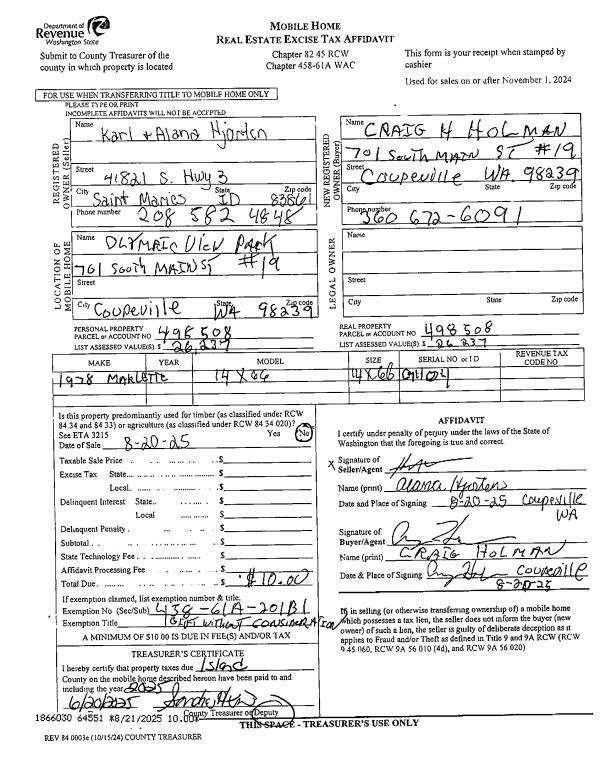 Department of
Revenue
Washington State
MOBILE HOME
REAL ESTATE EXCISE TAX AFFIDAVIT
Submit to County Treasurer of the
county in which property is located
Chapter 82 45 RCW
Chapter 458-61A WAC
This form is your receipt when stamped by
cashier
Used for sales on or after November 1, 2024
FOR USE WHEN TRANSFERRING TITLE TO MOBILE HOME ONLY
PLEASE TYPE OR PRINT
INCOMPLETE AFFIDAVITS WILL NOT BE ACCEPTED
REGISTERED OWNER (Seller)
Name Karl + Alana Hjorten
Street 41821 S. Hwy 3
City Saint Maries State ID Zip code 83861
Phone number 208 582 4848
NEW REGISTERED OWNER (Buyer)
Name CRAIG H HOLMAN
701 SOUTH MAIN ST #19
Street Coupeville WA 98239
City State Zip code
Phone number 360 672-6091
LOCATION OF MOBILE HOME
Name OLYMPIC VIEW PARK
701 SOUTH MAIN ST #19
Street
City Coupeville State WA Zip code 98239
LEGAL OWNER
Name
Street
City State Zip code
PERSONAL PROPERTY
PARCEL or ACCOUNT NO 498508
LIST ASSESSED VALUE(S) $ 26,237
REAL PROPERTY
PARCEL or ACCOUNT NO 498508
LIST ASSESSED VALUE(S) $ 26 237
MAKE YEAR MODEL SIZE SERIAL NO or ID REVENUE TAX CODE NO
1978 MARLETTE 14 X 66 14 X 66
Is this property predominantly used for timber (as classified under RCW
84 34 and 84 33) or agriculture (as classified under RCW 84 34 020)?
See ETA 3215 Yes No
Date of Sale 8-20-25
Taxable Sale Price $
Excise Tax State $
Local $
Delinquent Interest State $
Local $
Delinquent Penalty $
Subtotal $
State Technology Fee $
Affidavit Processing Fee $
Total Due $ $10.00
If exemption claimed, list exemption number & title:
Exemption No (Sec/Sub) 458-61A-201B1
Exemption Title GIFT WITHOUT CONSIDERATION
A MINIMUM OF $10 00 IS DUE IN FEE(S) AND/OR TAX
AFFIDAVIT
I certify under penalty of perjury under the laws of the State of
Washington that the foregoing is true and correct.
X Signature of
Seller/Agent
Name (print) Alana Hjorten
Date and Place of Signing 8-20-25 Coupeville
WA
Signature of
Buyer/Agent
Name (print) CRAIG HOLMAN
Date & Place of Signing Coupeville
8-20-25
If, in selling (or otherwise transferring ownership of) a mobile home
which possesses a tax lien, the seller does not inform the buyer (new
owner) of such a lien, the seller is guilty of deliberate deception as it
applies to Fraud and/or Theft as defined in Title 9 and 9A RCW (RCW
9 45 060, RCW 9A 56 010 (4d), and RCW 9A 56 020)
TREASURER'S CERTIFICATE
I hereby certify that property taxes due Island
County on the mobile home described hereon have been paid to and
including the year 2025
County Treasurer or Deputy
1866030 64551 8/21/2025 10.00
THIS SPACE - TREASURER'S USE ONLY
REV 84 0003e (10/15/24) COUNTY TREASURER